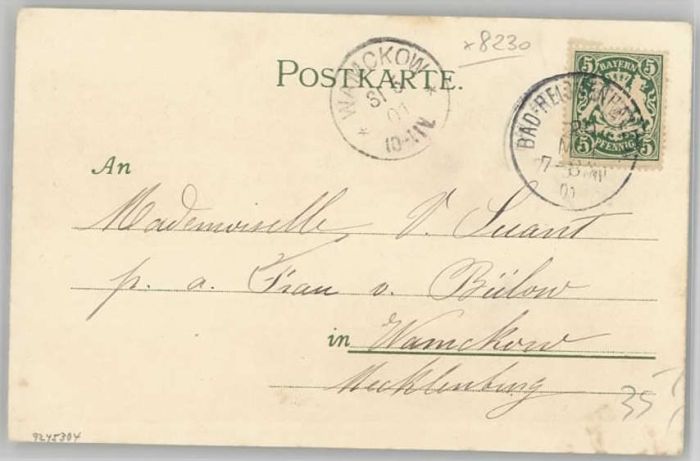 x8230
POSTKARTE.
WAMCKOW
5
01
5 BAYERN 5
5 PFENNIG 5
BAD-REICHENHALL
MAI
7-8
01
An
Mademoiselle V. Suant
p. a. Frau v. Bülow
in Wamckow
Mecklenburg
35
9245304